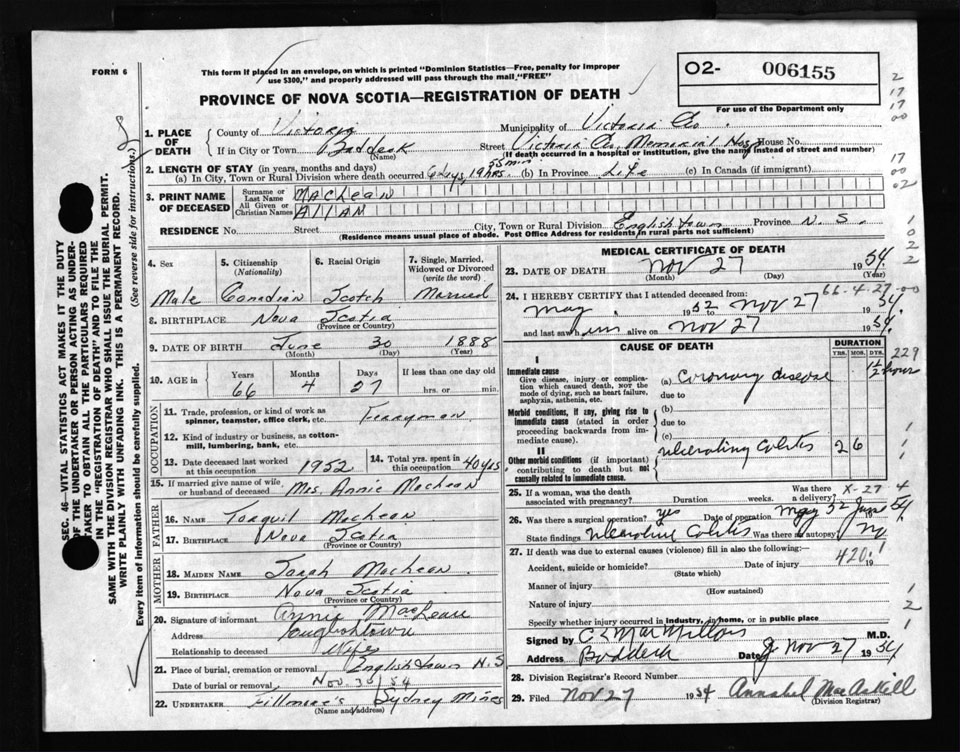 FORM 6
This form if placed in an envelope, on which is printed "Dominion Statistics—Free, penalty for improper
use $300," and properly addressed will pass through the mail "FREE"
O2- 006155
For use of the Department only
PROVINCE OF NOVA SCOTIA—REGISTRATION OF DEATH
1. PLACE OF DEATH County of Victoria Municipality of Victoria Co
If in City or Town Baddeck (Name) Street Victoria Co. Memorial Hosp House No.
(If death occurred in a hospital or institution, give the name instead of street and number)
2. LENGTH OF STAY (in years, months and days)
(a) In City, Town or Rural Division where death occurred 6 days 19 hrs. 35 min (b) In Province Life (c) In Canada (if immigrant)
3. PRINT NAME OF DECEASED Surname or Last Name MacLean
All Given or Christian Names ALLAN
RESIDENCE No. Street City, Town or Rural Division Englishtown Province N. S.
(Residence means usual place of abode. Post Office Address for residents in rural parts not sufficient)
4. Sex 5. Citizenship (Nationality) 6. Racial Origin 7. Single, Married, Widowed or Divorced (write the word)
Male Canadian Scotch Married
8. BIRTHPLACE Nova Scotia
(Province or Country)
9. DATE OF BIRTH June 30 1888
(Month) (Day) (Year)
10. AGE in Years Months Days If less than one day old
66 4 27 hrs. or min.
OCCUPATION
11. Trade, profession, or kind of work as spinner, teamster, office clerk, etc. Ferryman
12. Kind of industry or business, as cotton-mill, lumbering, bank, etc.
13. Date deceased last worked at this occupation 1952 14. Total yrs. spent in this occupation 40 yrs
15. If married give name of wife or husband of deceased Mrs. Annie MacLean
FATHER
16. NAME Torquil MacLean
17. BIRTHPLACE Nova Scotia
(Province or Country)
MOTHER
18. MAIDEN NAME Sarah MacLean
19. BIRTHPLACE Nova Scotia
(Province or Country)
20. Signature of informant Annie MacLean
Address Englishtown
Relationship to deceased Wife
21. Place of burial, cremation or removal Englishtown N.S
Date of burial or removal Nov. 30/54
22. UNDERTAKER Fillmore's Sydney Mines
(Name and address)
MEDICAL CERTIFICATE OF DEATH
23. DATE OF DEATH Nov 27 1954.
(Month) (Day) (Year)
66-4-27-00
24. I HEREBY CERTIFY that I attended deceased from:
May 1952 to Nov 27 1954.
and last saw him alive on Nov 27 1954.
CAUSE OF DEATH
DURATION
YRS. MOS. DYS.
229
I
Immediate cause
Give disease, injury or complication which caused death, not the mode of dying, such as heart failure, asphyxia, asthenia, etc.
(a) Coronary disease 1/2 hour
due to
Morbid conditions, if any, giving rise to immediate cause (stated in order proceeding backwards from immediate cause).
(b)
due to
(c)
II
Other morbid conditions (if important) contributing to death but not causally related to immediate cause.
Ulcerating Colitis 2 6
25. If a woman, was the death associated with pregnancy? Duration weeks. Was there a delivery?
X-27
26. Was there a surgical operation? yes Date of operation May 52 54
State findings Ulcerative Colitis Was there an autopsy? No
27. If death was due to external causes (violence) fill in also the following:—
420.1
Accident, suicide or homicide? Date of injury 19
(State which)
Manner of injury
(How sustained)
Nature of injury
Specify whether injury occurred in industry, in home, or in public place
Signed by C L MacMillan M.D.
Address Baddeck Date Nov 27 1954
28. Division Registrar's Record Number
29. Filed Nov 27 1954 Annabel MacAskill
(Division Registrar)
SEC. 46—VITAL STATISTICS ACT MAKES IT THE DUTY
OF THE UNDERTAKER OR PERSON ACTING AS UNDER-
TAKER TO OBTAIN ALL THE PARTICULARS REQUIRED
IN THE "REGISTRATION OF DEATH" AND TO FILE THE
SAME WITH THE DIVISION REGISTRAR WHO SHALL ISSUE THE BURIAL PERMIT.
WRITE PLAINLY WITH UNFADING INK. THIS IS A PERMANENT RECORD.
Every item of information should be carefully supplied. (See reverse side for instructions.)